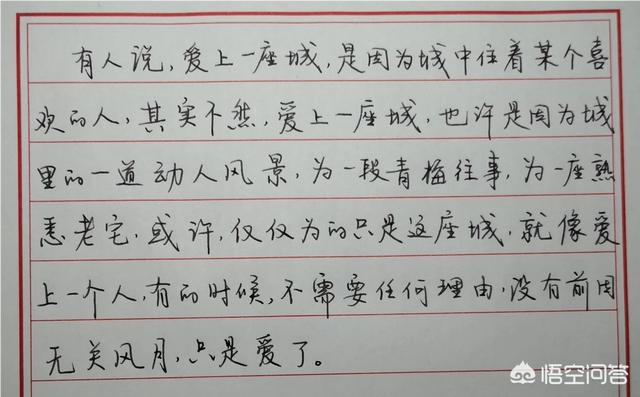 有人说，爱上一座城，是因为城中住着某个喜
欢的人，其实不然，爱上一座城，也许是因为城
里的一道动人风景，为一段青梅往事，为一座熟
悉老宅，或许，仅仅为的只是这座城，就像爱
上一个人，有的时候，不需要任何理由，没有前因
无关风月，只是爱了。
悟空问答